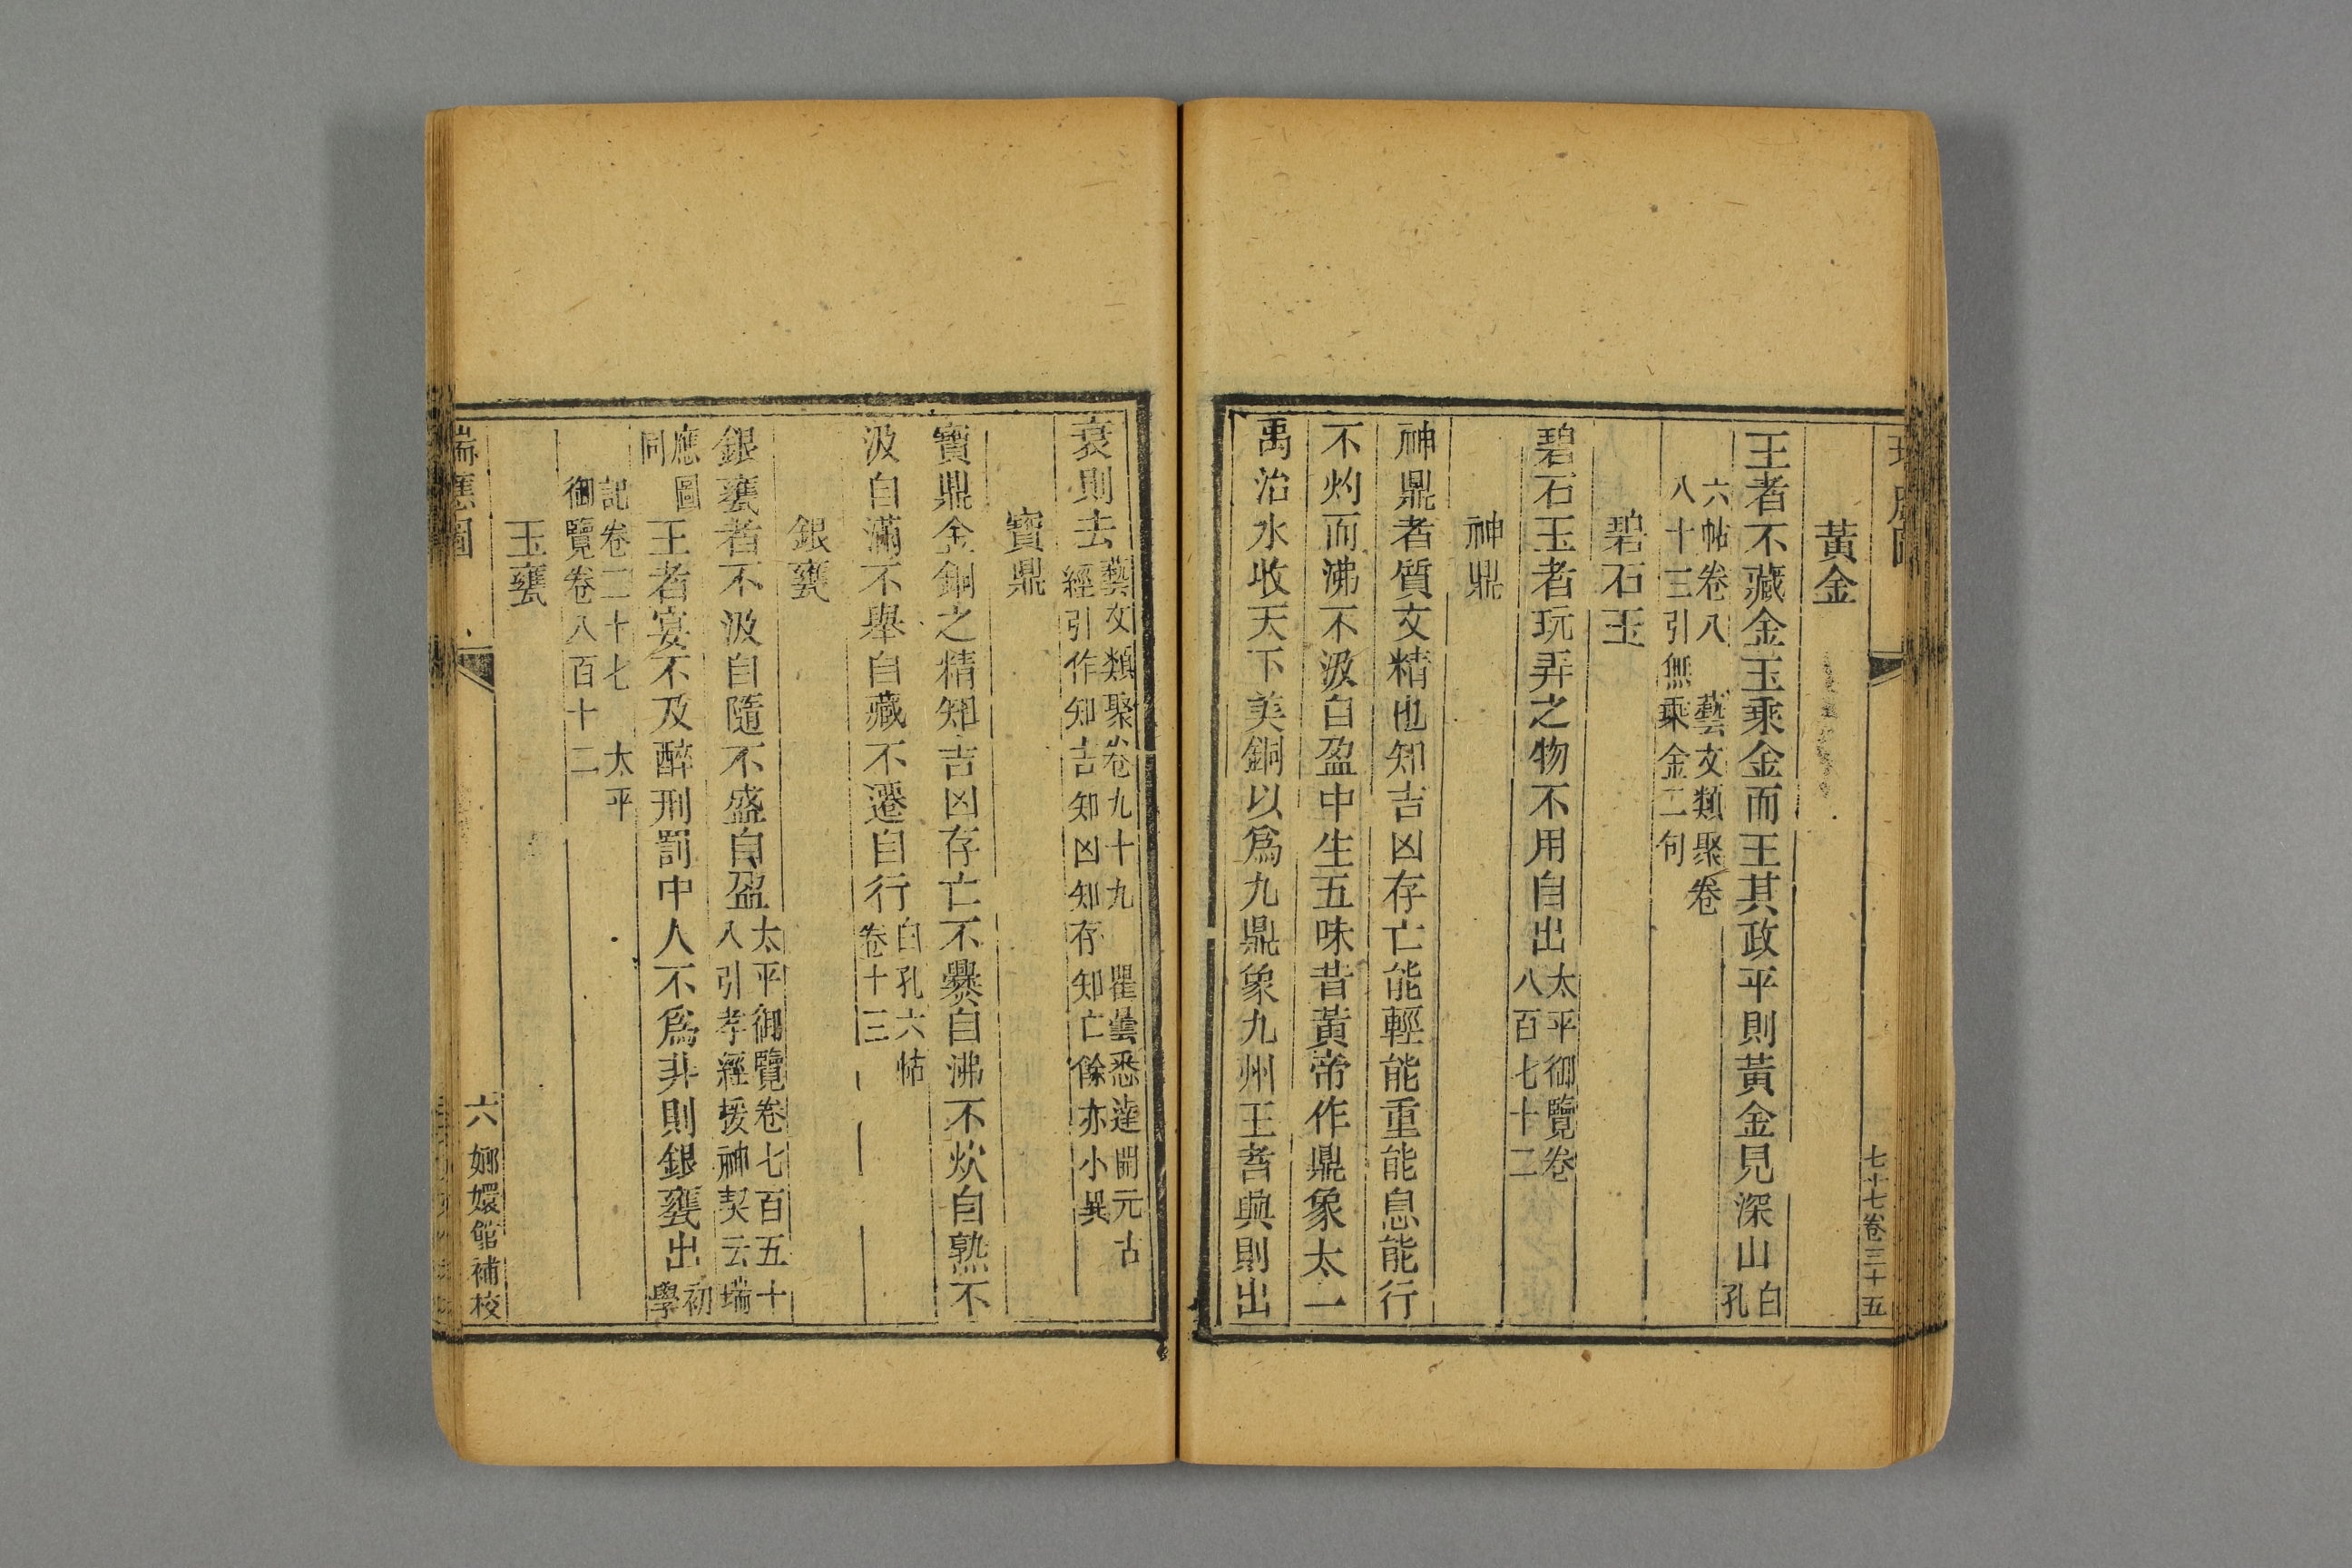 七十七卷三十五
黃金
王者不藏金玉乘金而王其政平則黃金見深山白孔
六帖卷八　藝文類聚卷
八十三引無乘金二句
碧石玉
碧石玉者玩弄之物不用自出太平御覽卷八百七十二
神鼎
神鼎者質文精也知吉凶存亡能輕能重能息能行
不灼而沸不汲自盈中生五味昔黃帝作鼎象太一
禹治水收天下美銅以爲九鼎象九州王者興則出
衰則去藝文類聚卷九十九　瞿曇悉達開元占經引作知吉知凶知存知亡餘亦小異
寶鼎
寶鼎金銅之精知吉凶存亡不爨自沸不炊自熟不
汲自滿不舉自藏不遷自行白孔六帖卷十三
銀甕
銀甕者不汲自隨不盛自盈太平御覽卷七百五十八引孝經援神契云瑞
應圖同王者宴不及醉刑罰中人不爲非則銀甕出初學
記卷二十七　太平
御覽卷八百十二
玉甕
瑞應圖　六　嫏嬛館補校